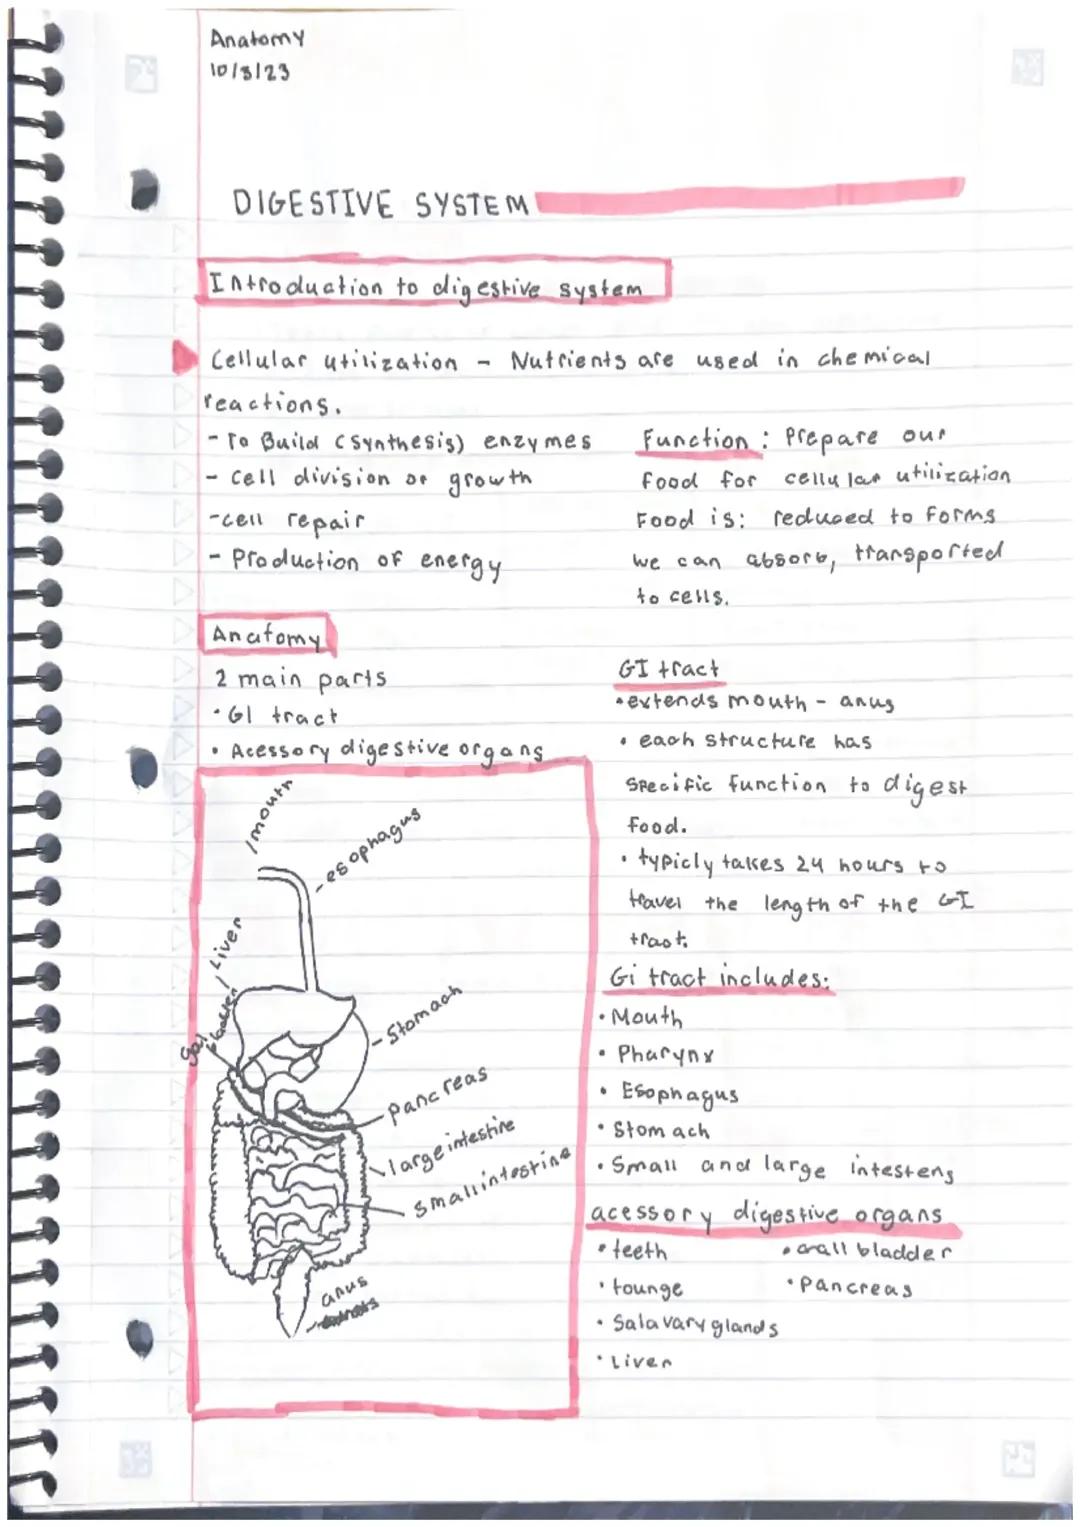 Anatomy
10/3/23
DIGESTIVE SYSTEM
Introduction to digestive system
Cellular utilization - Nutrients are used in chemical
reactions.
- To Build (synthesis) enzymes
- Cell division or growth
- cell repair
- Production of energy
Function: Prepare our
food for cellular utilization
Food is: reduced to forms
we can absorb, transported
to cells.
Anatomy
2 main parts
• GI tract
• Acessory digestive organs
mouth
- esophagus
Liver
gall bladder
- Stomach
- pancreas
- large intestine
small intestine
anus
GI tract
• extends mouth - anus
• each structure has
specific function to digest
food.
• typicly takes 24 hours to
travel the length of the GI
tract.
Gi tract includes:
• Mouth
• Pharynx
• Esophagus
• Stomach
• Small and large intestens
acessory digestive organs
• teeth
• tounge
• Salavary glands
• Liver
• Gall bladder
• Pancreas